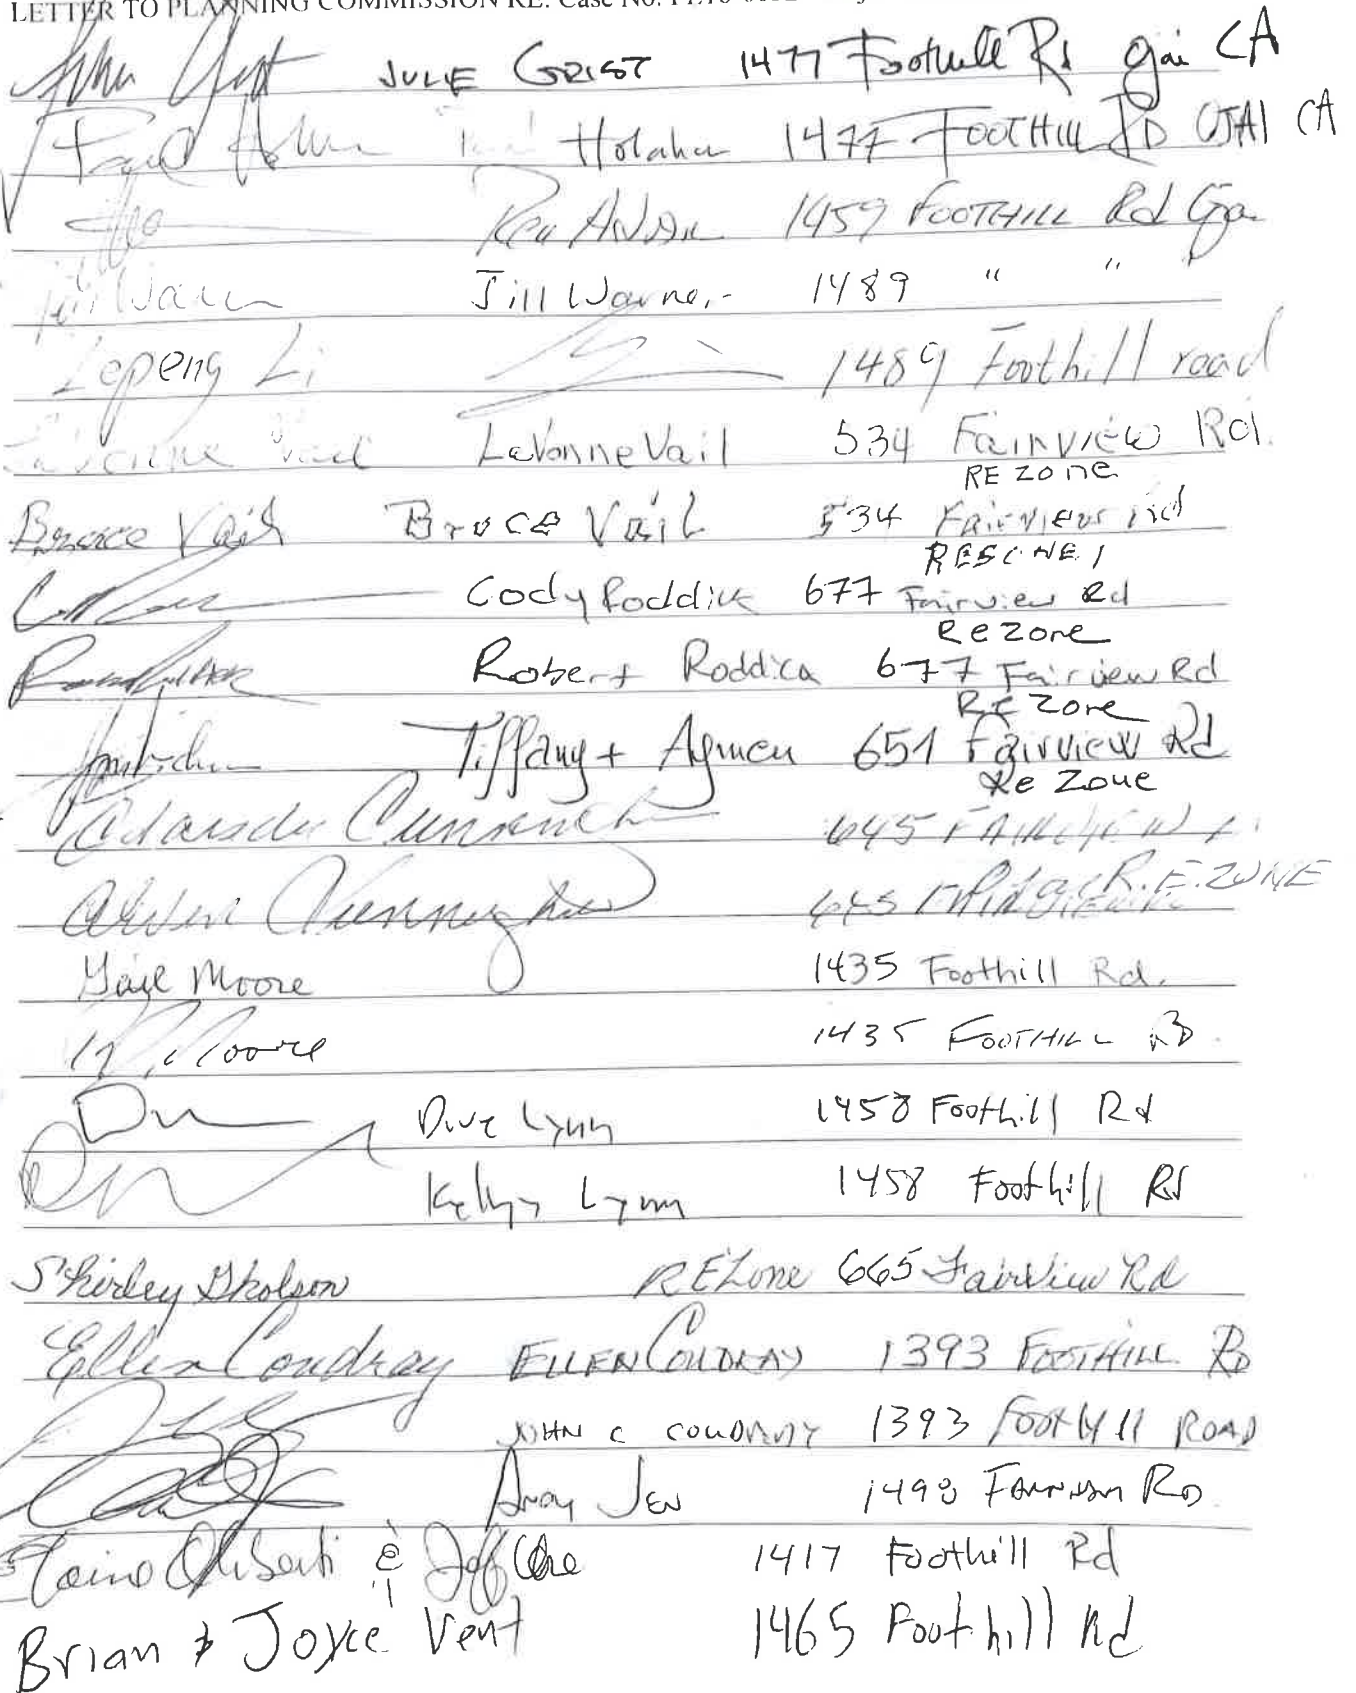 LETTER TO PLANNING COMMISSION RE: Case No.
JULIE GRIST 1477 Foothill Rd Ojai CA
Holahan 1477 FOOTHILL RD OJAI CA
1459 FOOTHILL Rd Ojai
Jill Warner 1489 " "
Lepeng Li 1489 Foothill road
LaVonne Vail LaVonne Vail 534 Fairview Rd.
RE Zone
Bruce Vail Bruce Vail 534 Fairview Rd
Cody Roddick 677 Fairview Rd
Re Zone
Robert Roddick 677 Fairview Rd
RE Zone
Tiffany + 651 Fairview Rd
Re Zone
Cunningham 645 FAIRVIEW
Cunningham 645 R.E. ZONE
Gail Moore 1435 Foothill Rd.
Moore 1435 FOOTHILL RD
Dave Lynn 1458 Foothill Rd
Kellyn Lynn 1458 Foothill Rd
Shirley REZone 665 Fairview Rd
Ellen Coudray ELLEN COUDRAY 1393 FOOTHILL RD
JOHN C COUDRAY 1393 Foothill ROAD
1498 Rd
& Jeff 1417 Foothill Rd
Brian & Joyce Vent 1465 Foothill Rd